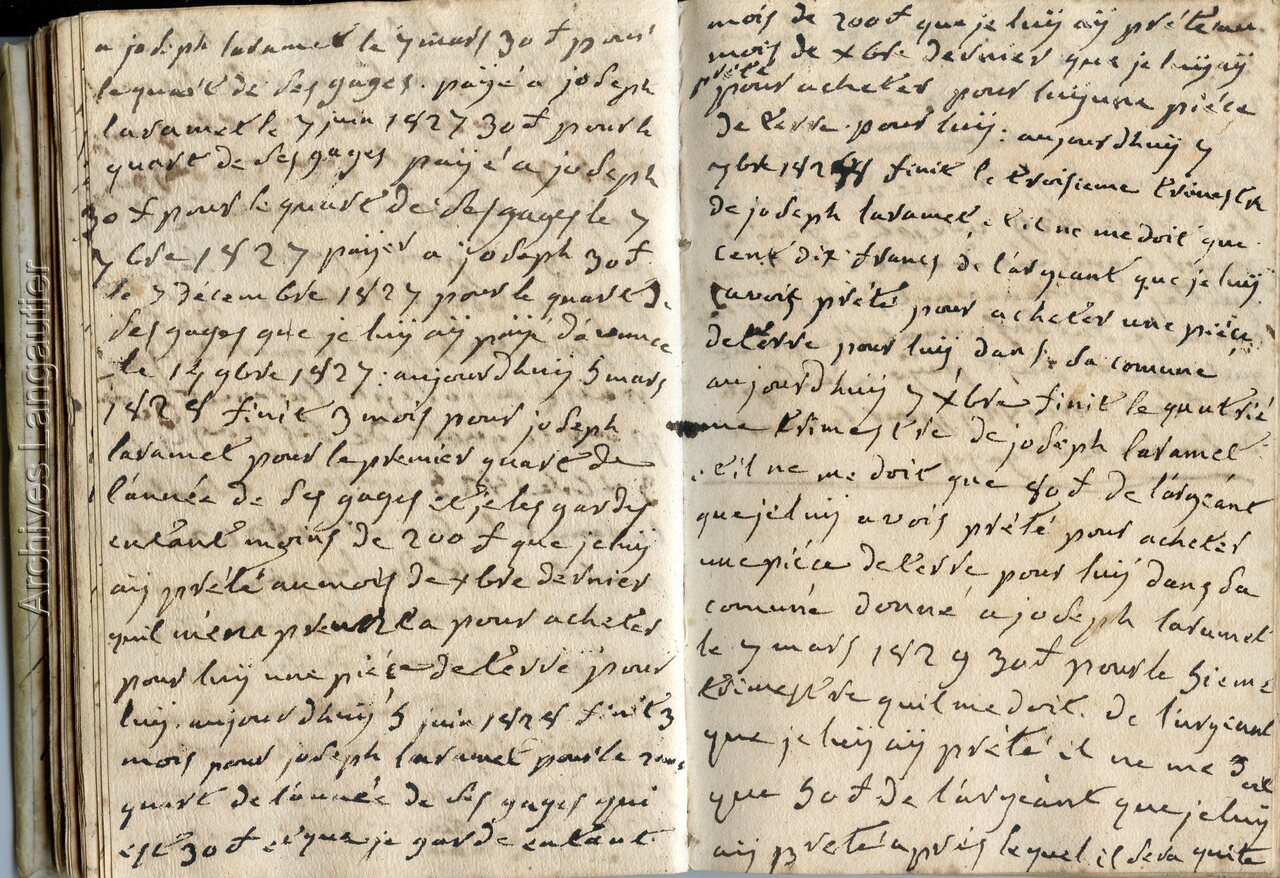 a joseph laramet le 7 mars 30 ₶ pour
le quart de ses gages. paÿé a joseph
laramet le 7 juin 1827 30 ₶ pour le
quart de ses gages paÿé a joseph
30 ₶ pour le quart de ses gages le 7
7bre 1827 paÿer a joseph 30 ₶
le 7 décembre 1827 pour le quart de
ses gages que je luÿ aÿ paÿé d'avance
le 14 9bre 1827: aujourdhuÿ 5 mars
1828 finit 3 mois pour joseph
laramet pour le premier quart de
l'année de ses gages et je les gardes
entant moins de 200 ₶ que je luÿ
aÿ prété au mois de xbre dernier
quil pour acheter
pour luÿ une piéce de terre pour
luÿ. aujourdhuÿ 5 juin 1828 finit 3
mois pour joseph laramet pour le 2ème
quart de l'année de ses gages qui
est 30 ₶ et que je garde entant
mois de 200 ₶ que je luÿ aÿ prété au
mois de xbre dernier que je luÿ aÿ
prété
pour acheter pour luÿ une piéce
de terre pour luÿ: aujourdhuÿ 7
7bre 1828 finit le troisieme trimestre
de joseph laramet, et il ne me doit que
cent dix francs de l'argeant que je luÿ
avois prété pour acheter une piéce
de terre pour luÿ dans sa comune
aujourdhuÿ 7 xbre finit le quatrié
me trimestre de joseph laramet
et il ne me doit que 80 ₶ de l'argeant
que je luÿ avois prété pour acheter
une piéce de terre pour luÿ dans sa
comune donné a joseph laramet
le 7 mars 1829 30 ₶ pour le 5ieme
trimestre quil me doit. de l'argeant
que je luÿ aÿ prété il ne me doit
que 50 ₶ de l'argeant que je luÿ
aÿ preté aprés lequel il sera quite
Archives Langautier